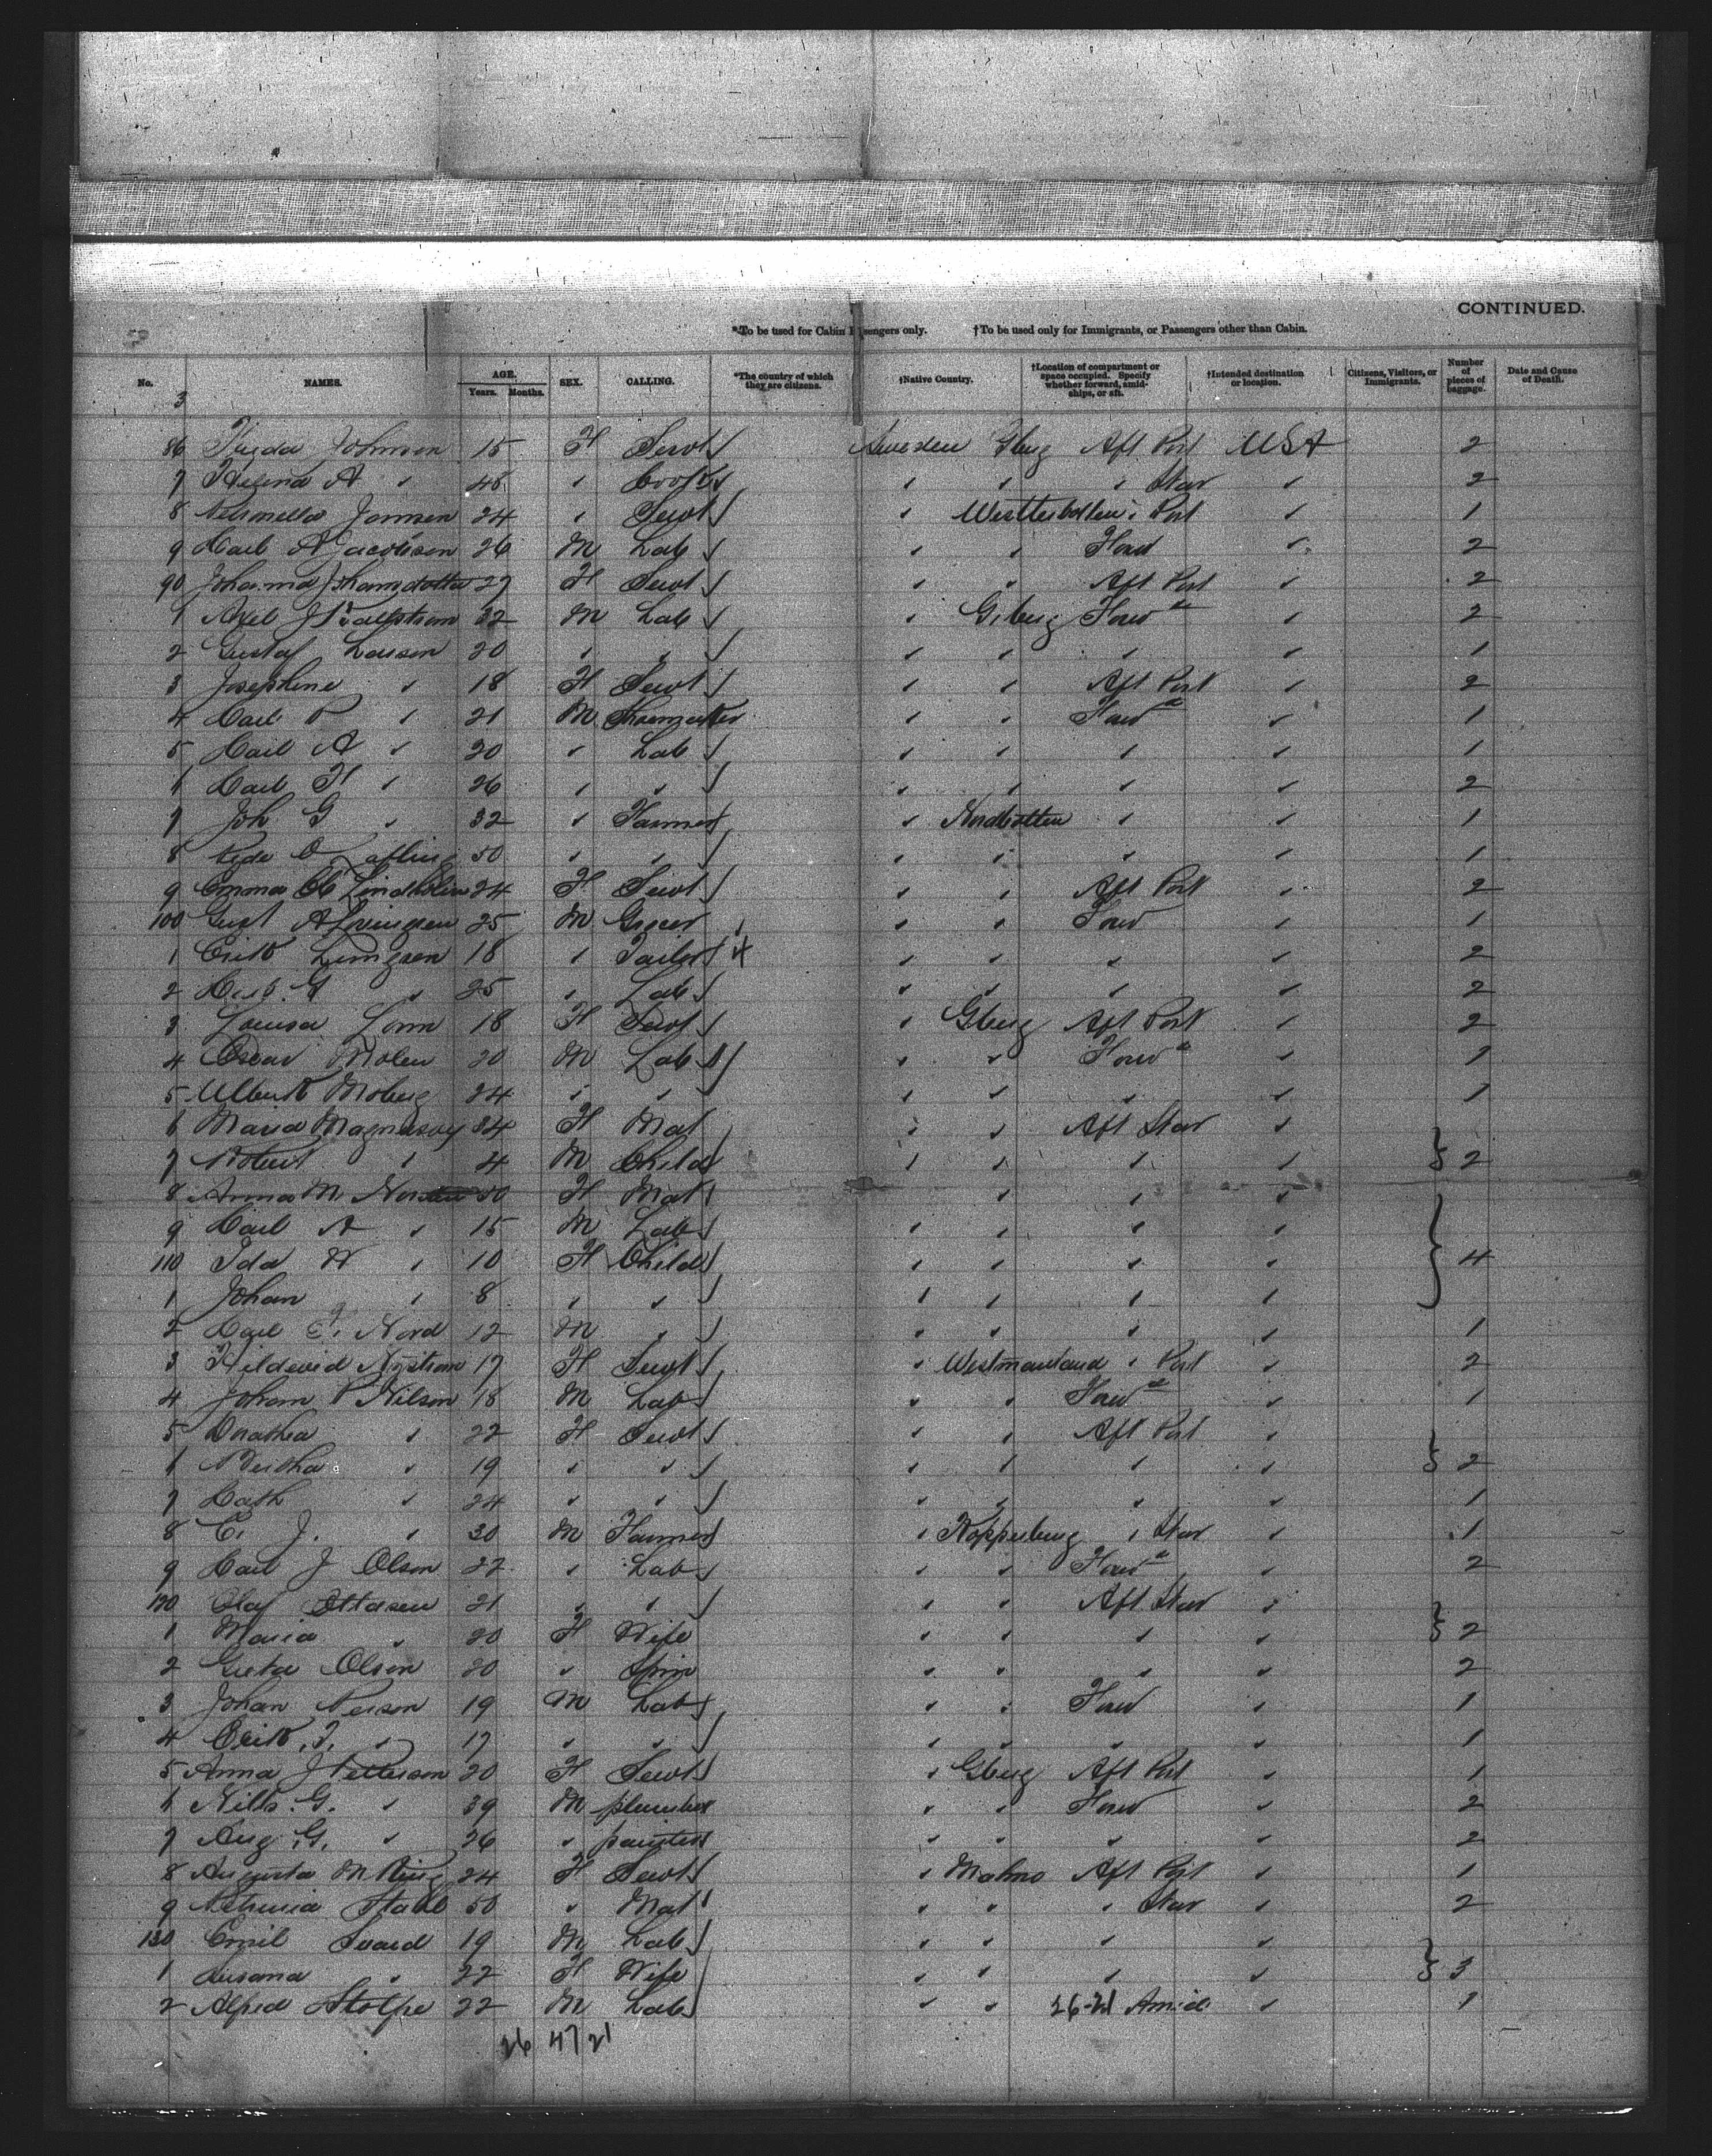 CONTINUED.
*To be used for Cabin Passengers only. †To be used only for Immigrants, or Passengers other than Cabin.
No. NAMES. AGE. Years. Months. SEX. CALLING. *The country of which they are citizens. †Native Country. †Location of compartment or space occupied. Specify whether forward, amidships, or aft. †Intended destination or location. Citizens, Visitors, or Immigrants. Number of pieces of baggage. Date and Cause of Death.
3
86 Johnson 15 F Servt Sweden Gberg Aft Port USA 2
7 Helena A " 48 " Cook " " " Star " 2
8 Petronella Jonnsen 24 " Servt " Westterbotten " Port " 1
9 Carl A Jacobson 26 M Lab " " Forwd " 2
90 Johanna 27 F Servt " " Aft Port " 2
1 Axel J 32 M Lab " Gberg Forwd " 2
2 Gustaf Larson 20 " " " " " " 1
3 Josephine " 18 F Servt " " Aft Port " 2
4 Carl " 21 M Shoemaker " " Forwd " 1
5 Carl A " 20 " Lab " " " " 1
6 Carl F " 26 " " " " " " 2
7 Joh G " 32 " Farmer " Nordbotten " " 1
8 50 " " " " " " 1
9 Emma Lindholm 24 F Servt " " Aft Port " 2
100 Gust 25 M Grocer " " Forwd " 1
1 Erik Ljungren 18 " Tailor 4 " " " " 2
2 G " 25 " Lab " " " " 2
3 Louisa Lonn 18 F Servt " Gberg Aft Port " 2
4 Oscar Molen 20 M Lab " " Forwd " 1
5 Albert Moberg 24 " " " " " " 1
6 Maria 34 F Mat " " Aft Star "
7 Robert " 4 M Child " " " " } 2
8 Anna M 50 F Mat " " "
9 Carl A " 15 M Lab " " " "
110 Ida W " 10 F Child " " " " } 4
1 Johan " 8 " " " " " "
2 Carl Nord 12 M " " " " " 1
3 Hildevid Nystrom 17 F Servt " Westmanland " Port " 2
4 Johan P Nilson 18 M Lab " " Forwd " 1
5 " 22 F Servt " " Aft Port "
6 Bertha " 19 " " " " " " } 2
7 Cath " 24 " " " " " " 1
8 C. J. " 30 M Farmer " Kopperberg " Star " 1
9 Carl J Olson 22 " Lab " " Forwd " 2
120 Olaf Ottosen 21 " " " " Aft Star "
1 Maria " 20 F Wife " " " " } 2
2 Greta Olson 20 " Spin " " " " 2
3 Johan Person 19 M Lab " " Forwd " 1
4 Erik " 17 " " " " " " 1
5 Anna J Petterson 20 F Servt " Gberg Aft Port " 1
6 Nills G. " 39 M plumber " " Forwd " 2
7 Aug G. " 26 " painter " " " " 2
8 Augusta M 24 F Servt " Malmo Aft Port " 1
9 50 " Mat " " " Star " 2
130 Emil Svard 19 M Lab " " " "
1 Susana " 22 F Wife " " " " } 3
2 Alfred Stolpe 22 M Lab " " 26-21 Amid. " 1
26 47 21